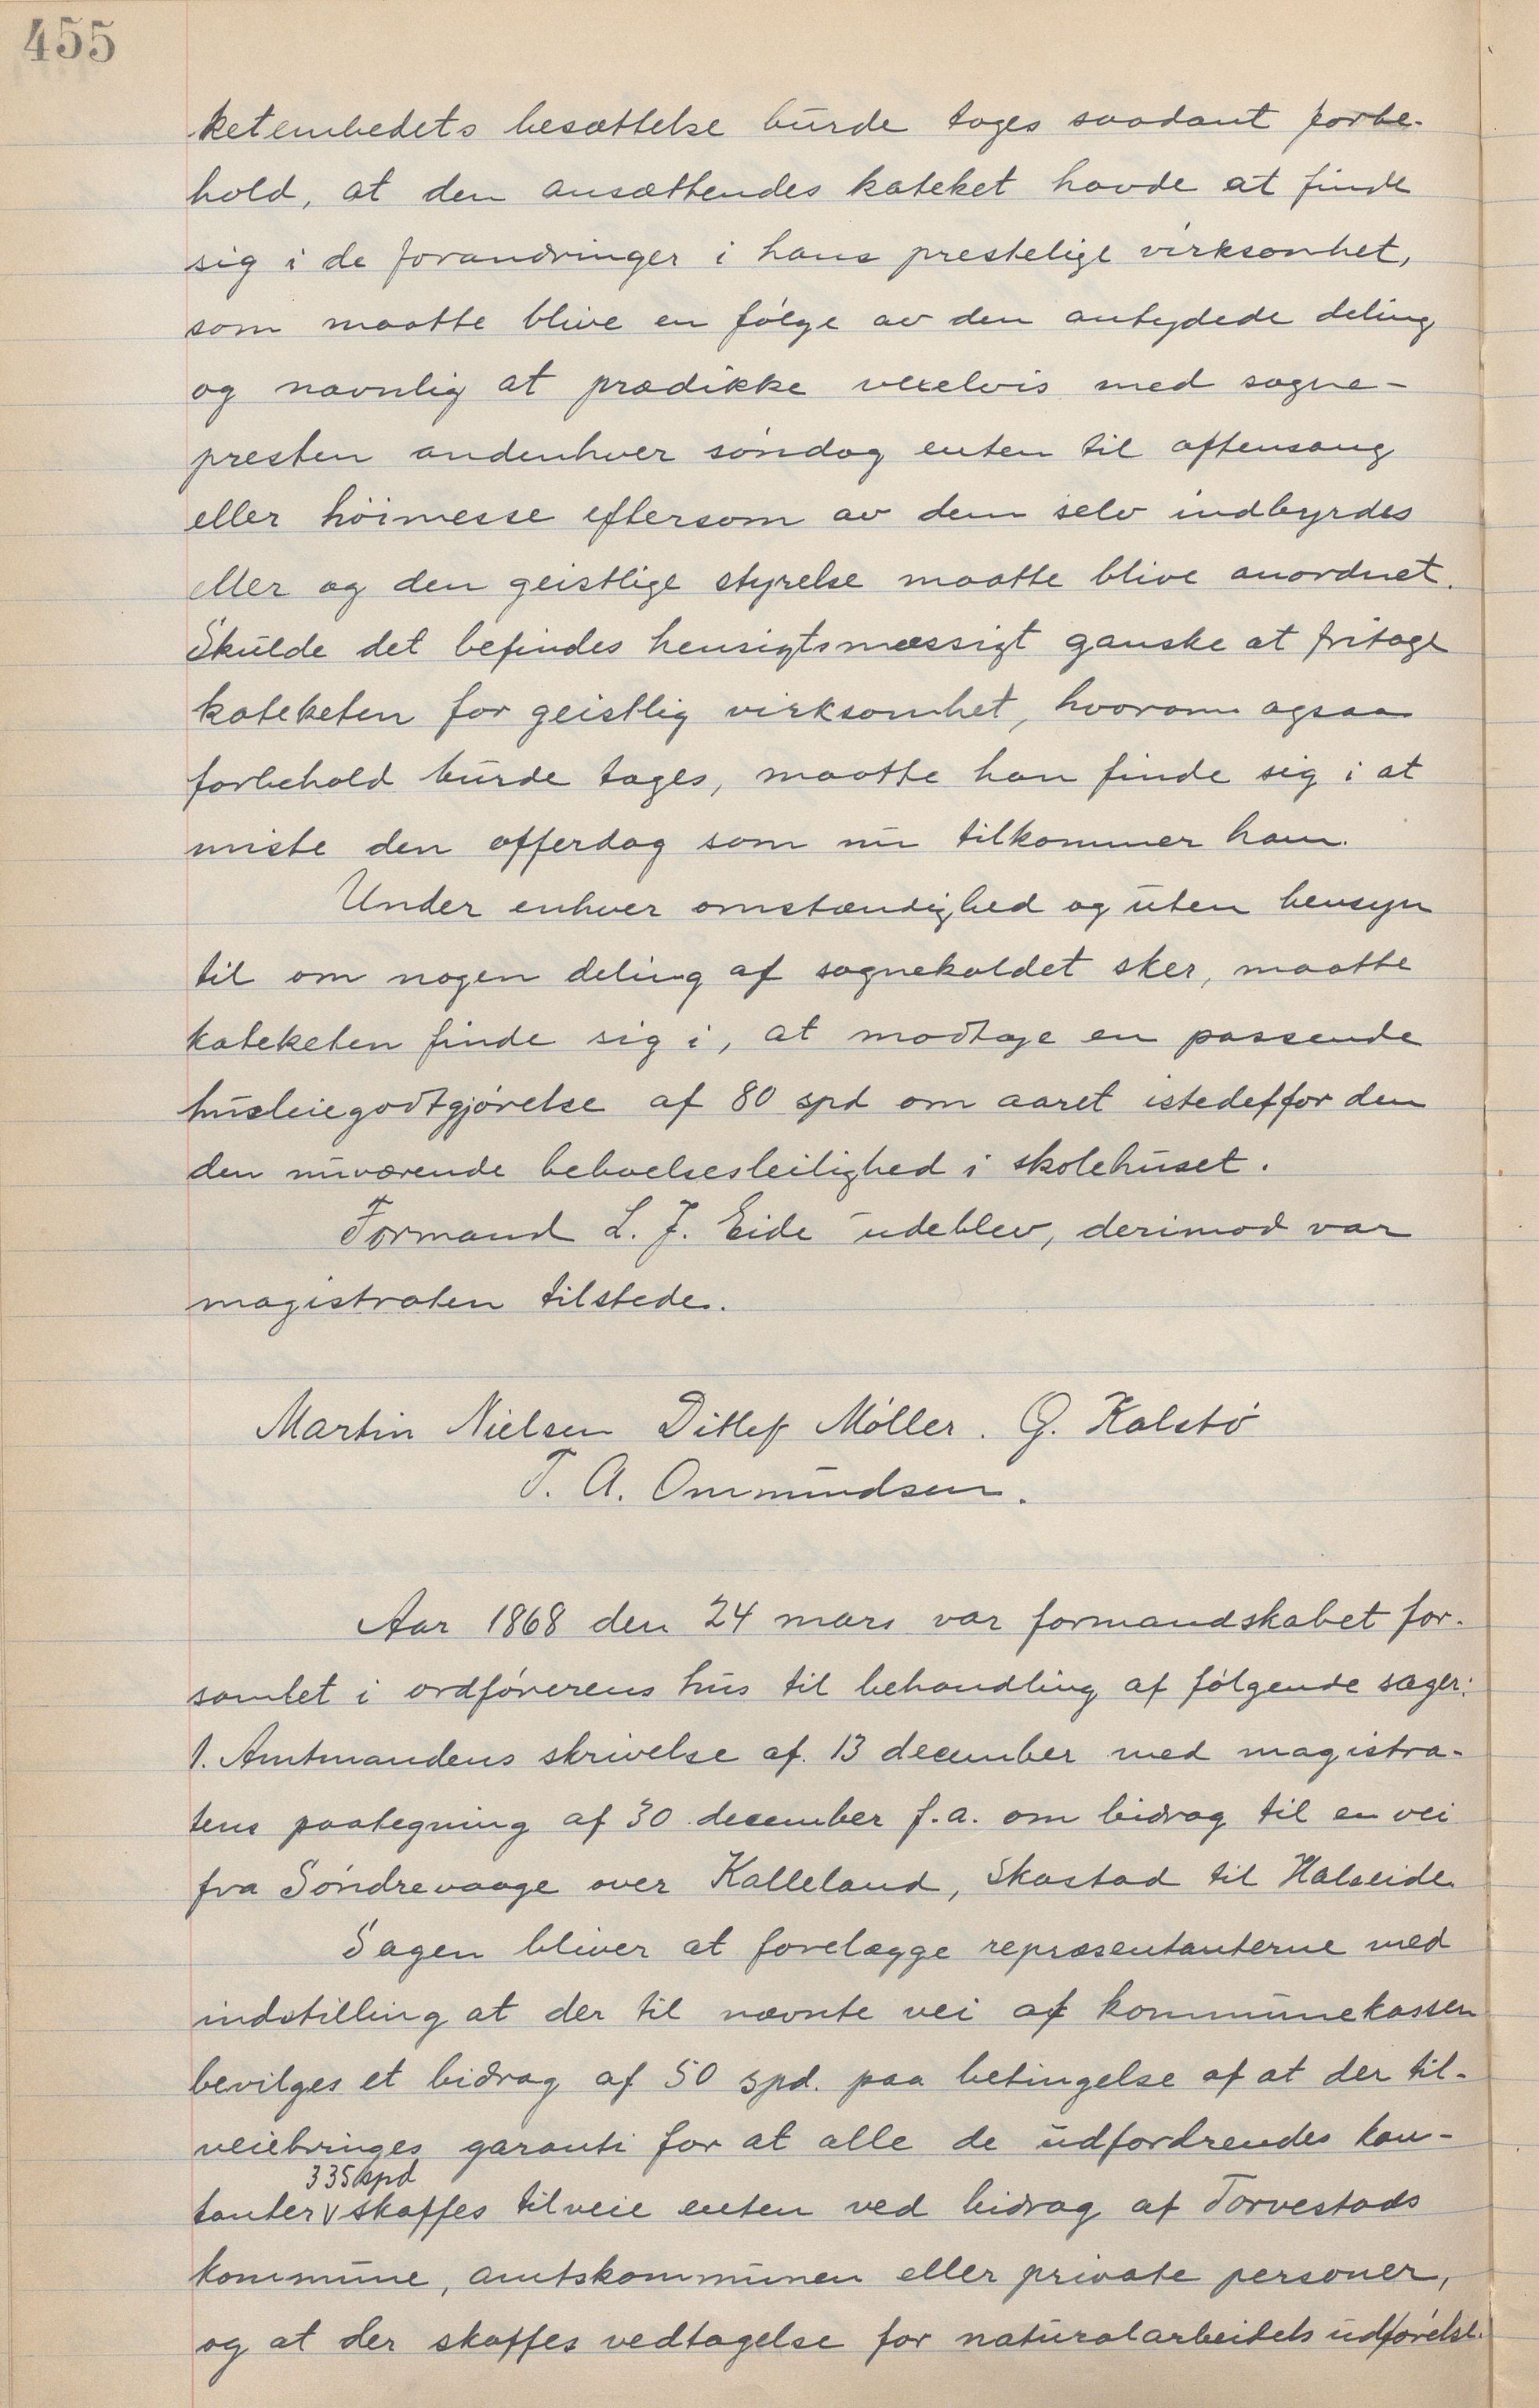 455
ketembedets besættelse burde tages saadant forbe-
hold, at den ansættendes kateket havde at finde
sig i de forandringer i hans prestelige virksomhet,
som maatte blive en følge av den antydede deling
og navnlig at prædikke vexelvis med sogne-
presten andenhver søndag enten til aftensang
eller høimesse eftersom av dem selv indbyrdes
eller og den geistlige styrelse maatte blive anordnet.
Skulde det befindes hensigtsmæssigt ganske at fritage
kateketen for geistlig virksomhet, hvorom ogsaa
forbehold burde tages, maatte han finde sig i at
miste den offerdag som nu tilkommer ham.
Under enhver omstændighed og uten hensyn
til om nogen deling af sognekaldet sker, maatte
kateketen finde sig i, at modtage en passende
husleiegodtgjørelse af 80 spd om aaret istedetfor den
den nuværende beboelsesleilighed i skolehuset.
Formand L. J. Eide udeblev, derimod var
magistraten tilstede.
Martin Nielsen Ditlef Møller. G. Kalstø
T. A. Ommundsen.
Aar 1868 den 24 mars var formandskabet for-
samlet i ordførerens hus til behandling af følgende sager:
1. Amtmandens skrivelse af 13 december med magistra-
tens paategning af 30 december f.a. om bidrag til en vei
fra Søndrevaage over Kalleland, Skastad til Halseide.
Sagen bliver at forelægge repræsentanterne med
indstilling at der til nævnte vei af kommunekassen
bevilges et bidrag af 50 spd. paa betingelse af at der til-
veiebringes garanti for at alle de udfordrendes kon-
335 spd
tanter v skaffes tilveie enten ved bidrag af Torvestads
kommune, amtskommunen eller private personer,
og at der skaffes vedtagelse for naturalarbeidets udførelse.